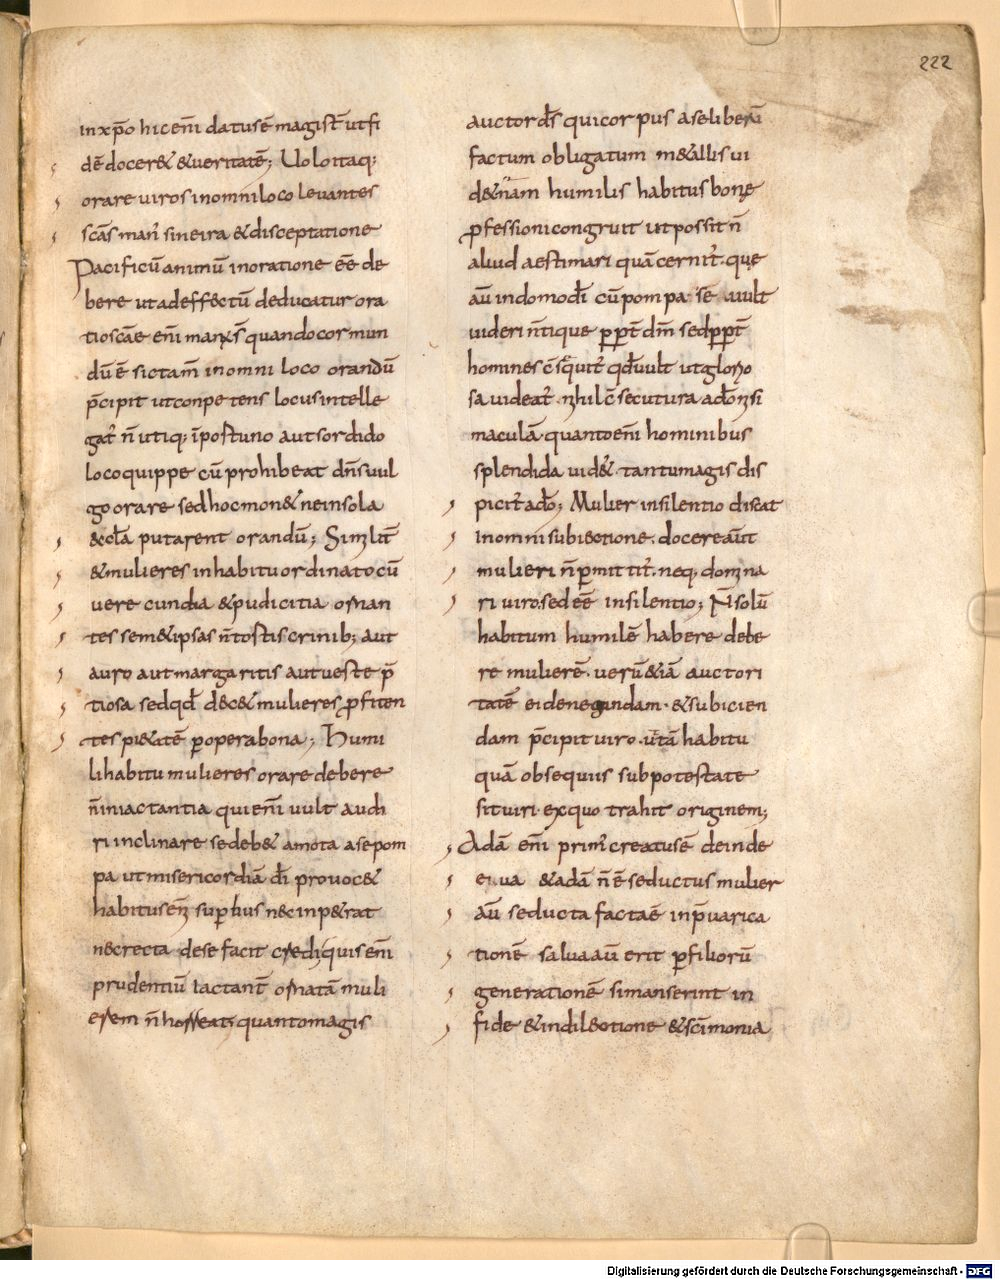 222
inxp̄o hicenī datusē magist̄ utfi
dē docer& &ueritatē; Uoloitaq;
orare uiros inomniloco leuantes
sc̄as man' sineira &disceptatione
Pacificū animū inoratione eē de
bere utadeffectū deducatur ora
tioscāe enī quandocor mun
dū ē sictam̄ inomni loco orandū
p̄cipit utconpetens locusintelle
gat' n̄ utiq; ī postuno autsordido
locoquippe cū prohibeat dn̄suul
go orare sedhocmon& neinsola
&cl̄a putarent orandū; Similit̄
&mulieres inhabitu ordinatocū
uere cundia &pudicitia ornan
tes sem&ipsas n̄ tostis crinib; aut
auro autmargaritis autueste p̄
tiosa sedqd̄ dec& mulieres profiten
tes pi&atē poperabona; Humi
lihabitu mulieres orare debere
n̄ iniactantia qui enī uult audi
ri inclinare sedeb& amota asepom
pa ut misericordiā dī prouoc&
habitusenī supbus necinp&rat
necrecta dese facit credi quis enī
prudentiū iactant̄ ornatā muli
erem n̄ horreat quantomagis
auctor ds̄ quicorpus aseliberū
factum obligatum m&allis ui
d& nam humilis habitusbonę
pfessionicongruit utpossit n̄
aliud aestimari quā cernit' que
aū indomodī cū pompa se uult
uideri n̄tique ppt̄ dm̄ sedppt̄
homines qd̄uult utglorio
sa uideat' nihil c̄secutura adōnisi
maculā quantoenī hominibus
splendida uid&' tantumagis dis
picit' adō; Mulier insilentio discat
inomni subiectione docereaūt
mulieri n̄ pmittit' neq; domina
ri uirosedeē insilentio; N̄ solū
habitum humilē habere debe
re mulierē uerū&iā auctori
tatē ei denegandam &subicien
dam p̄cipit uiro ut tā habitu
quā obsequiis subpotestate
situiri exquo trahit originem;
Adā enī prim' creatusē deinde
eua &adā n̄ ē seductus mulier
aū seducta factaē inp̄uarica
tionē saluaaū erit pfiliorū
generationē simanserint in
fide &indilectione &sc̄imonia
Digitalisierung gefördert durch die Deutsche Forschungsgemeinschaft - DFG